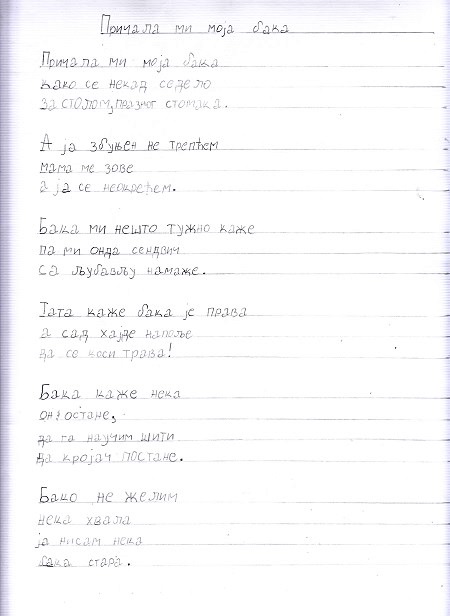 Причала ми моја бака
Причала ми моја бака
како се некад седело
за столом, празног стомака.
А ја збуњен не трепћем
мама ме зове
а ја се неокрећем.
Бака ми нешто тужно каже
па ми онда сендвич
са љубављу намаже.
Тата каже бака је права
а сад хајде напоље
да се коси трава!
Бака каже нека
он остане,
да га научим шити
да кројач постане.
Бако не желим
нека хвала
ја нисам нека
бака стара.